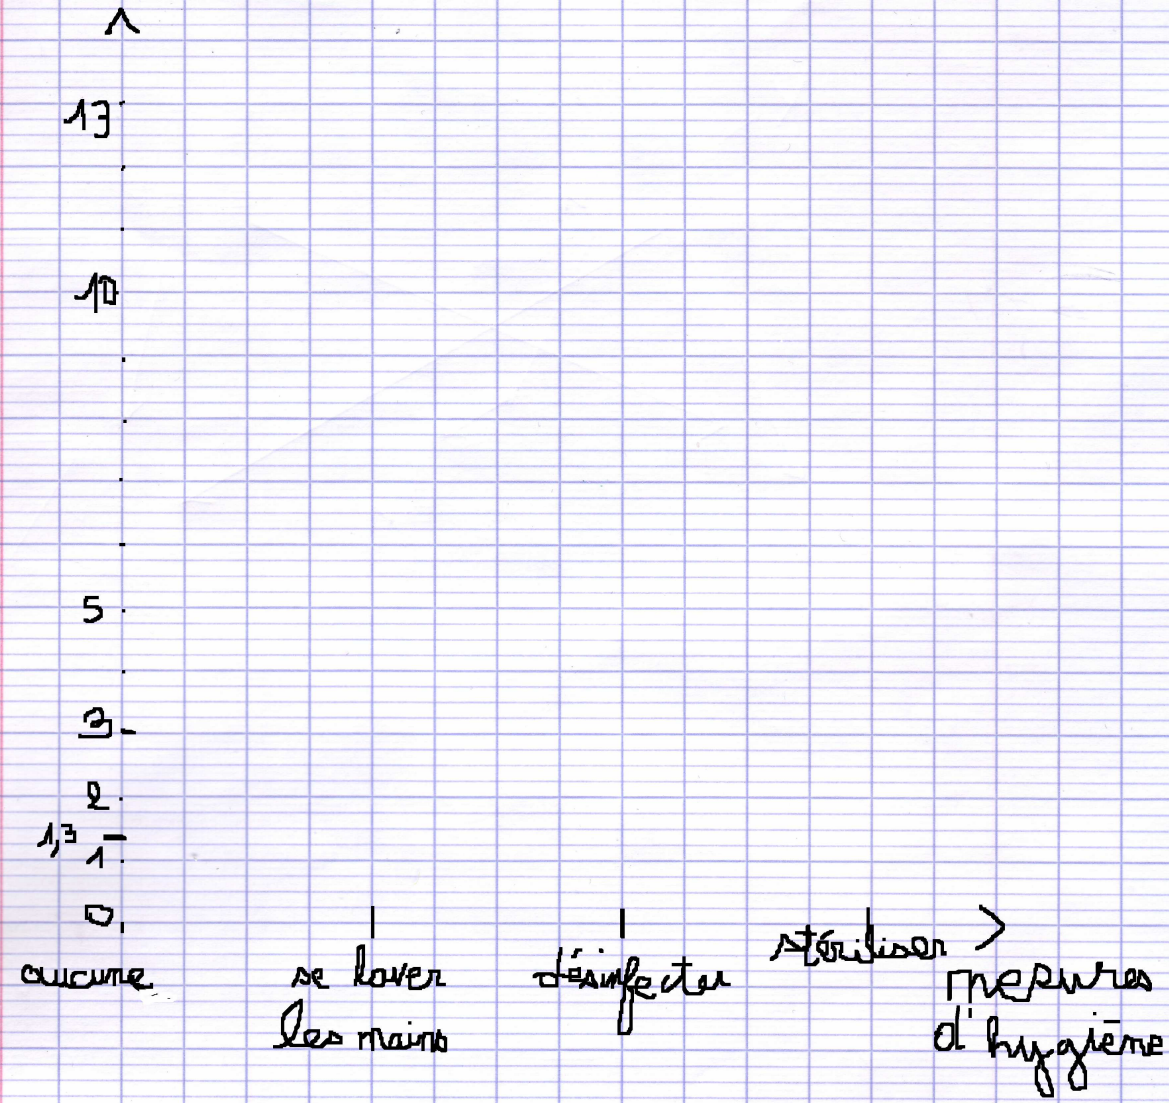 13
10
5
3
2
1,3
1
0
aucune
se laver
les mains
désinfecter
stériliser
mesures
d'hygiène